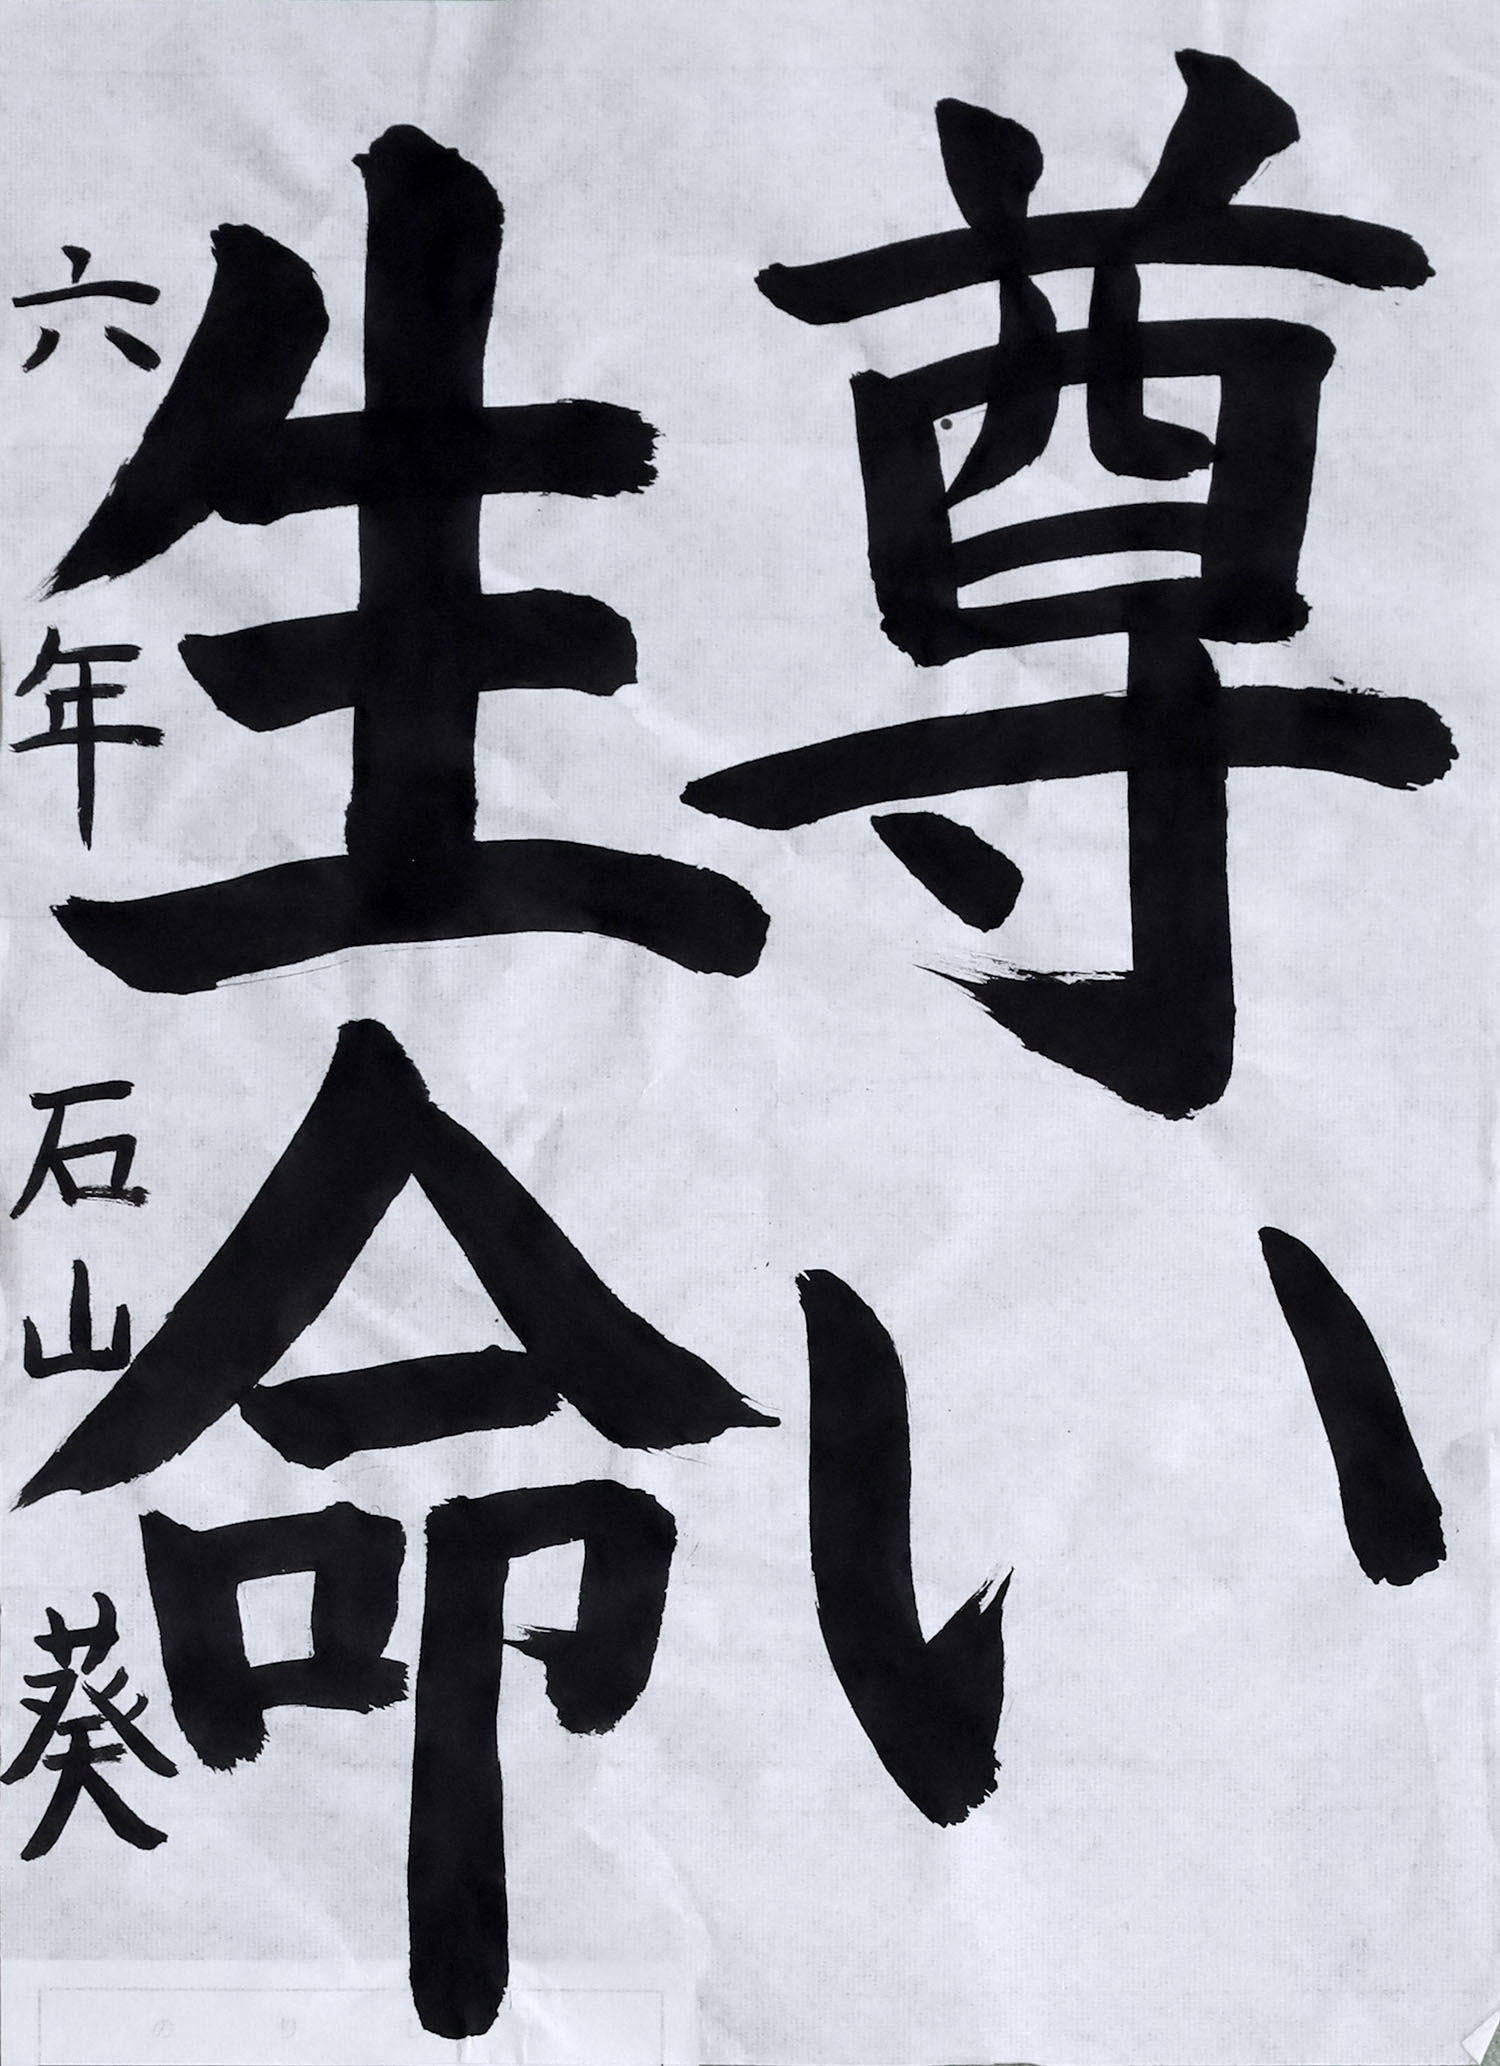 尊い
生命
六年 石山 葵